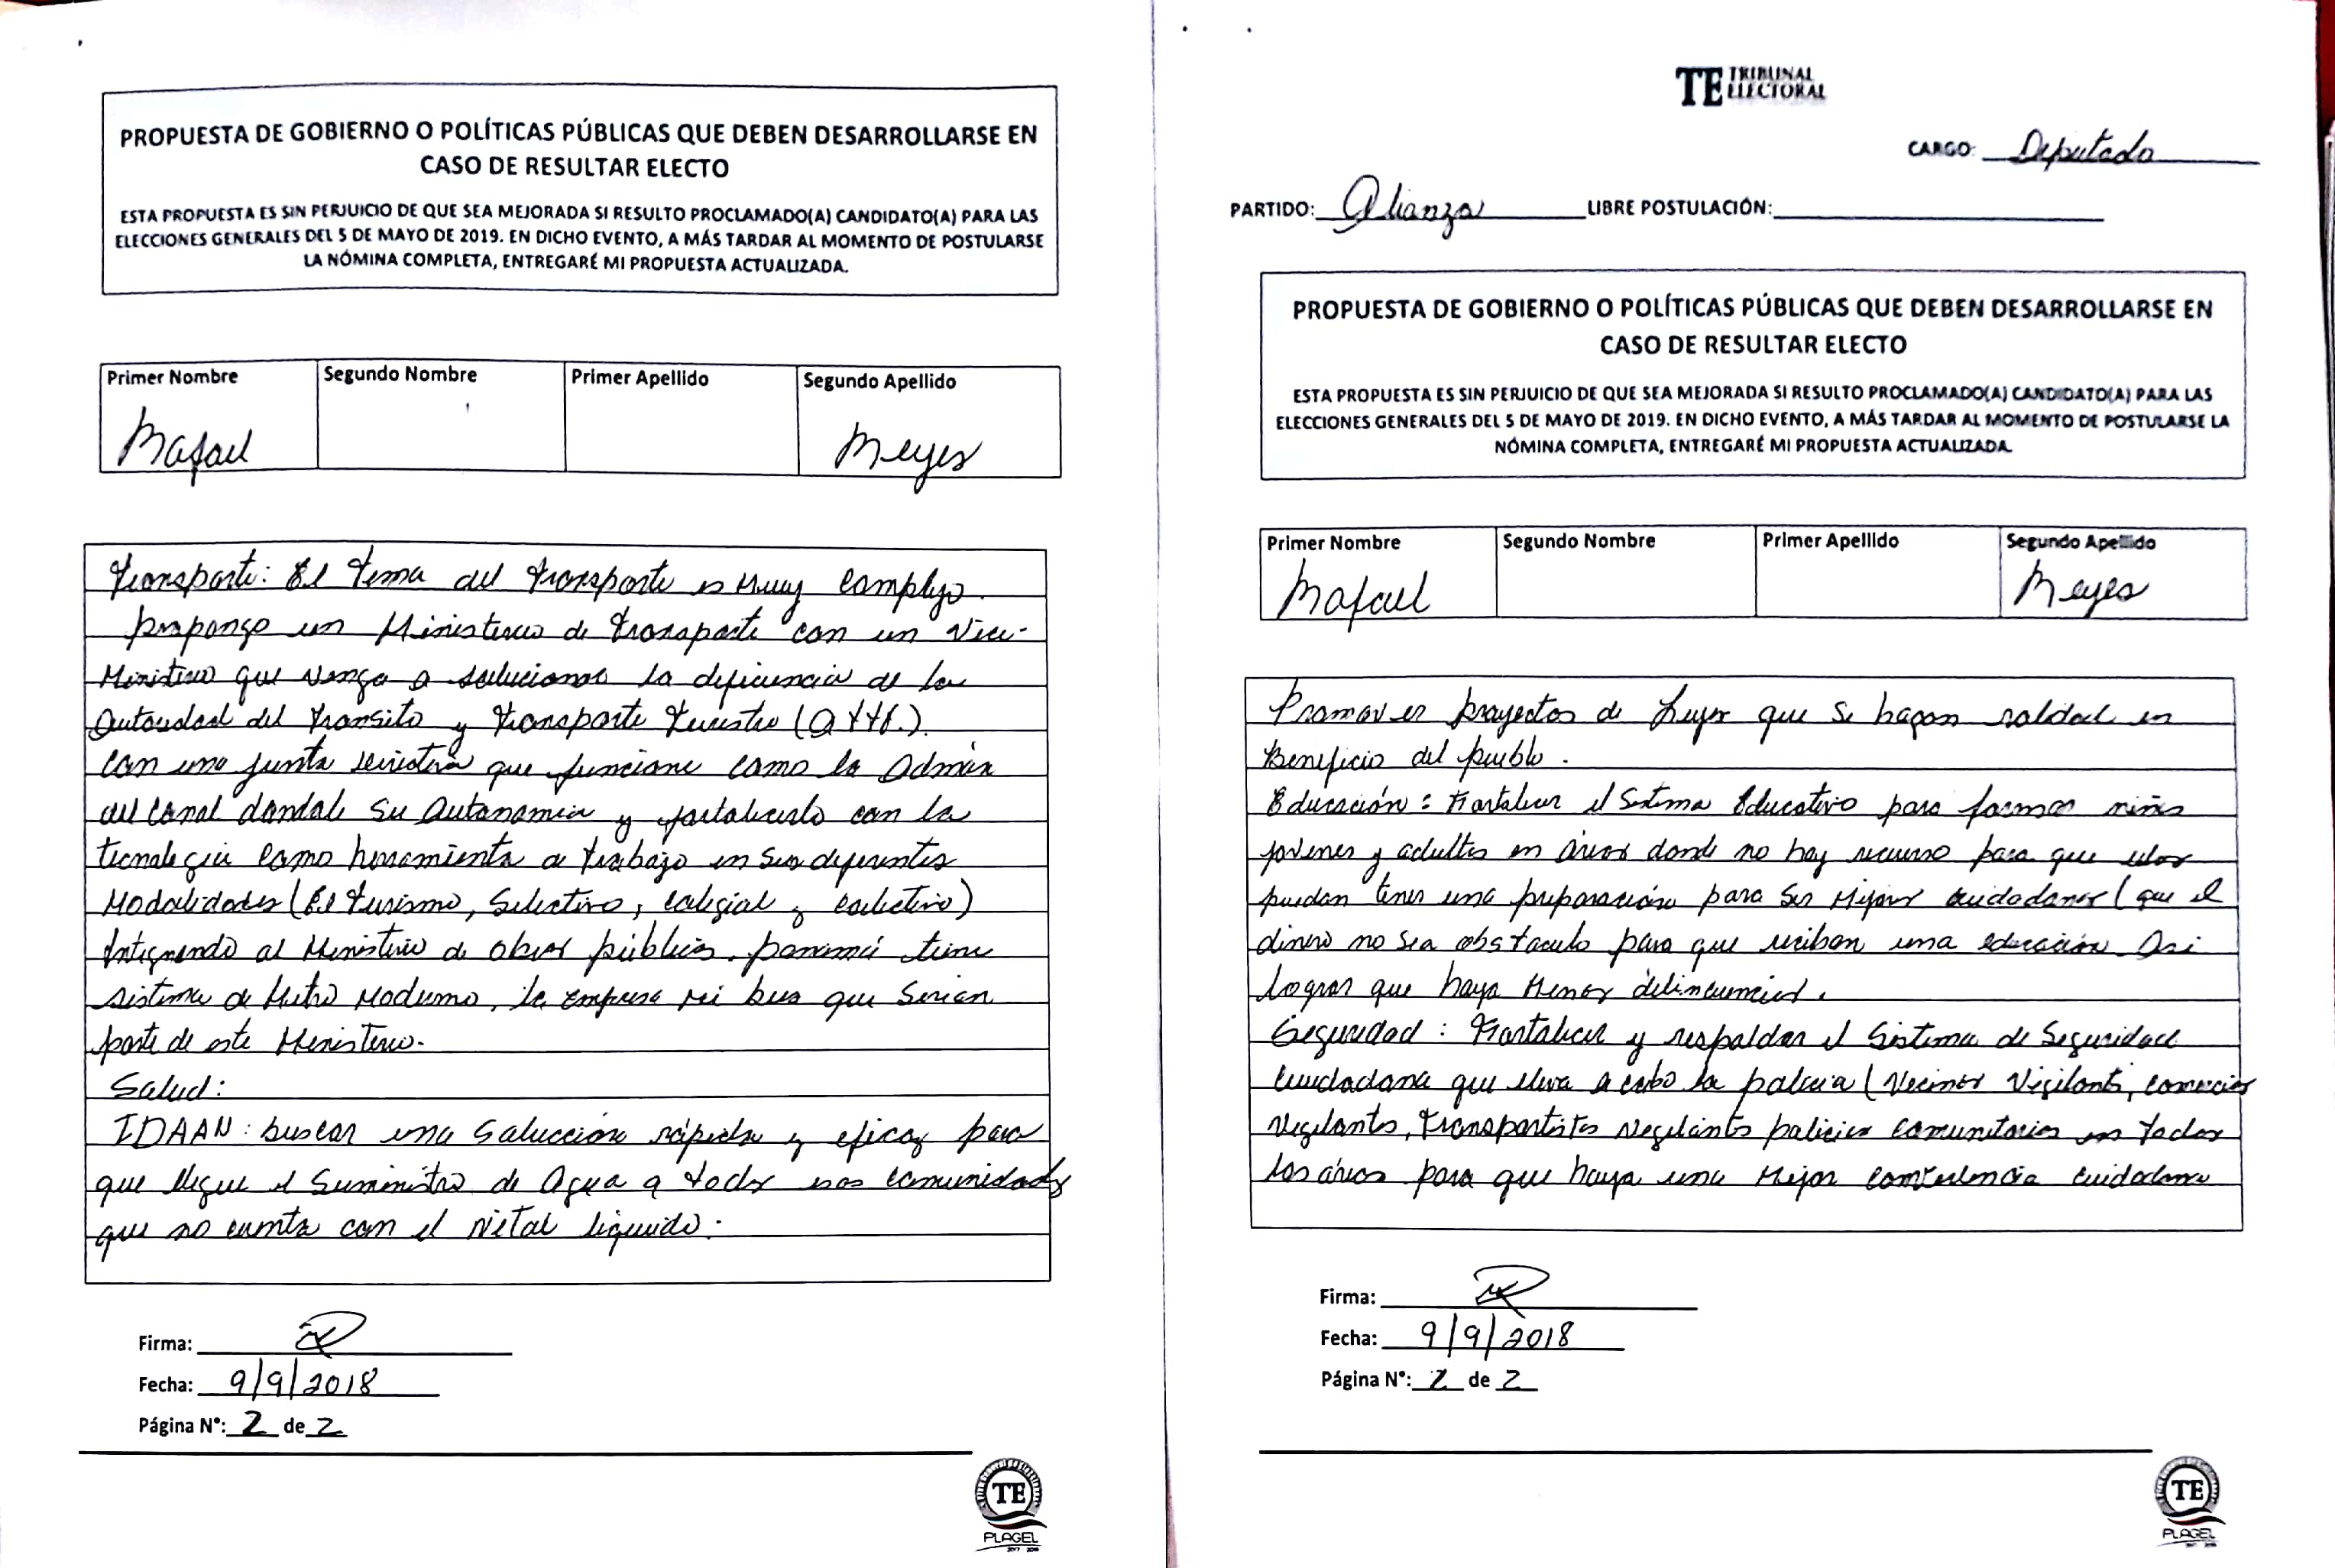 PROPUESTA DE GOBIERNO O POLÍTICAS PÚBLICAS QUE DEBEN DESARROLLARSE EN
CASO DE RESULTAR ELECTO
ESTA PROPUESTA ES SIN PERJUICIO DE QUE SEA MEJORADA SI RESULTO PROCLAMADO(A) CANDIDATO(A) PARA LAS
ELECCIONES GENERALES DEL 5 DE MAYO DE 2019. EN DICHO EVENTO, A MÁS TARDAR AL MOMENTO DE POSTULARSE
LA NÓMINA COMPLETA, ENTREGARÉ MI PROPUESTA ACTUALIZADA.
Primer Nombre Segundo Nombre Primer Apellido Segundo Apellido
Rafael Reyes
Transporte: El tema del transporte es muy complejo.
propongo un Ministerio de transporte con un Vice-
Ministerio que venga a solucionar la deficiencia de la
Autoridad del tránsito y transporte terrestre (Attt.)
con una junta que funcione como la Admin
del Canal dandole su Autonomia y fortalecerlo con la
tecnologia como herramienta de trabajo en sus diferentes
Modalidades (El turismo, Selectivo, colegial y colectivo)
Integrando al Ministerio de obras públicas. panamá tiene
sistema de Metro Moderno, la empresa mi bus que serian
parte de este Ministerio.
Salud:
IDAAN: buscar una solucción rápida y eficaz para
que llegue el Suministro de Agua a todas esas comunidades
que no cuenta con el vital liquido.
Firma:
Fecha: 9/9/2018
Página N°: 2 de 2
TE PLAGEL
TE TRIBUNAL
ELECTORAL
CARGO: Deputado
PARTIDO: Alianza LIBRE POSTULACIÓN:
PROPUESTA DE GOBIERNO O POLÍTICAS PÚBLICAS QUE DEBEN DESARROLLARSE EN
CASO DE RESULTAR ELECTO
ESTA PROPUESTA ES SIN PERJUICIO DE QUE SEA MEJORADA SI RESULTO PROCLAMADO(A) CANDIDATO(A) PARA LAS
ELECCIONES GENERALES DEL 5 DE MAYO DE 2019. EN DICHO EVENTO, A MÁS TARDAR AL MOMENTO DE POSTULARSE LA
NÓMINA COMPLETA, ENTREGARÉ MI PROPUESTA ACTUALIZADA.
Primer Nombre Segundo Nombre Primer Apellido Segundo Apellido
Rafael Reyes
Promover proyectos de Leyes que se hagan ralidad en
Beneficio del pueblo.
Educación: Fortalecer el Sistema Educativo para formar niños
jovenes y adultos en áreas donde no hay recurso para que ellos
puedan tener una preparación para ser mejores cuidadanos (que el
dinero no sea obstaculo para que reciban una educación. Asi
lograr que haya menos delincuencia.
Seguridad: Fortalecer y respaldar el Sistema de Seguridad
cuidadana que lleva a cabo la policia (Vecinos Vigilante, comercios
Vigilantes, Transportistas Vegilantes policias comunitarios en todas
las áreas para que haya una Mejor convivencia cuidadana
Firma:
Fecha: 9/9/2018
Página N°: 2 de 2
TE PLAGEL